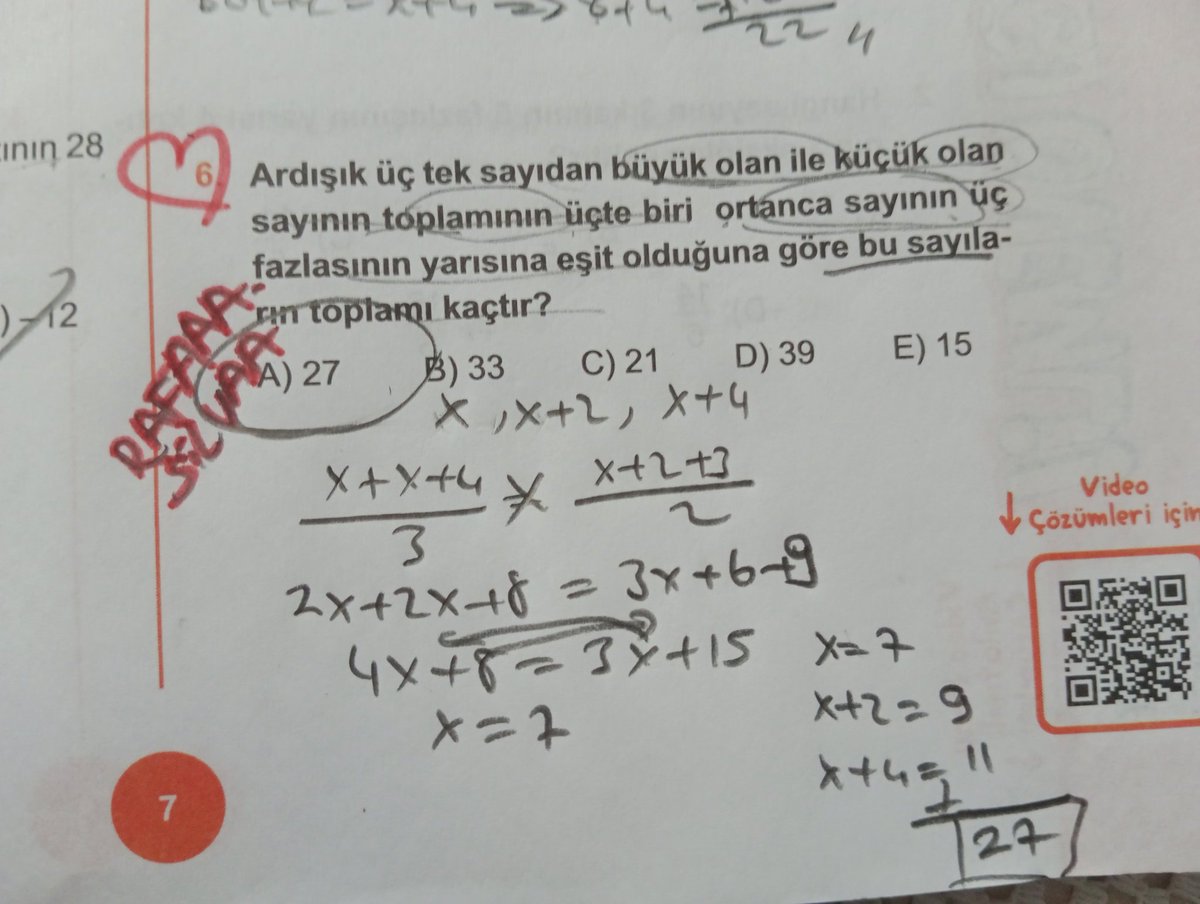 22 4
ının 28
6 Ardışık üç tek sayıdan büyük olan ile küçük olan
sayının toplamının üçte biri ortanca sayının üç
fazlasının yarısına eşit olduğuna göre bu sayıla-
rın toplamı kaçtır?
) -12
A) 27 B) 33 C) 21 D) 39 E) 15
x , x+2, x+4
x+x+4 x+2+3
3 2
2x+2x+8 = 3x+6+9
4x+8 = 3x+15
x = 7
x=7
x+2=9
x+4=11
27
Video
Çözümleri için
7